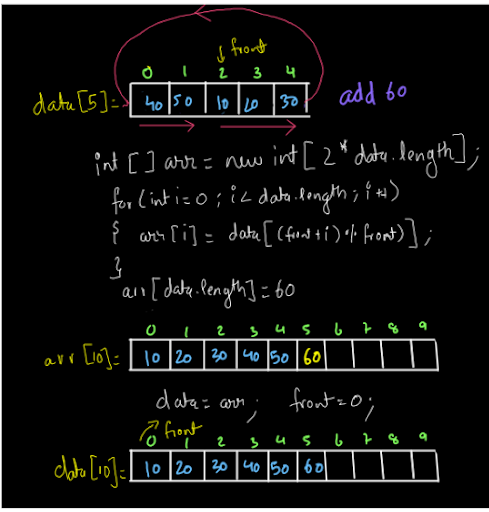 ↓ front
0 1 2 3 4
data[5]:- 40 50 10 20 30 add 60
int [] arr = new int[2 * data.length];
for (int i=0 ; i< data.length ; i++)
{ arr[i] = data[(front+i) % front)];
}
arr[data.length]=60
0 1 2 3 4 5 6 7 8 9
arr[10]:- 10 20 30 40 50 60
data = arr; front=0;
front
0 1 2 3 4 5 6 7 8 9
data[10]:- 10 20 30 40 50 60